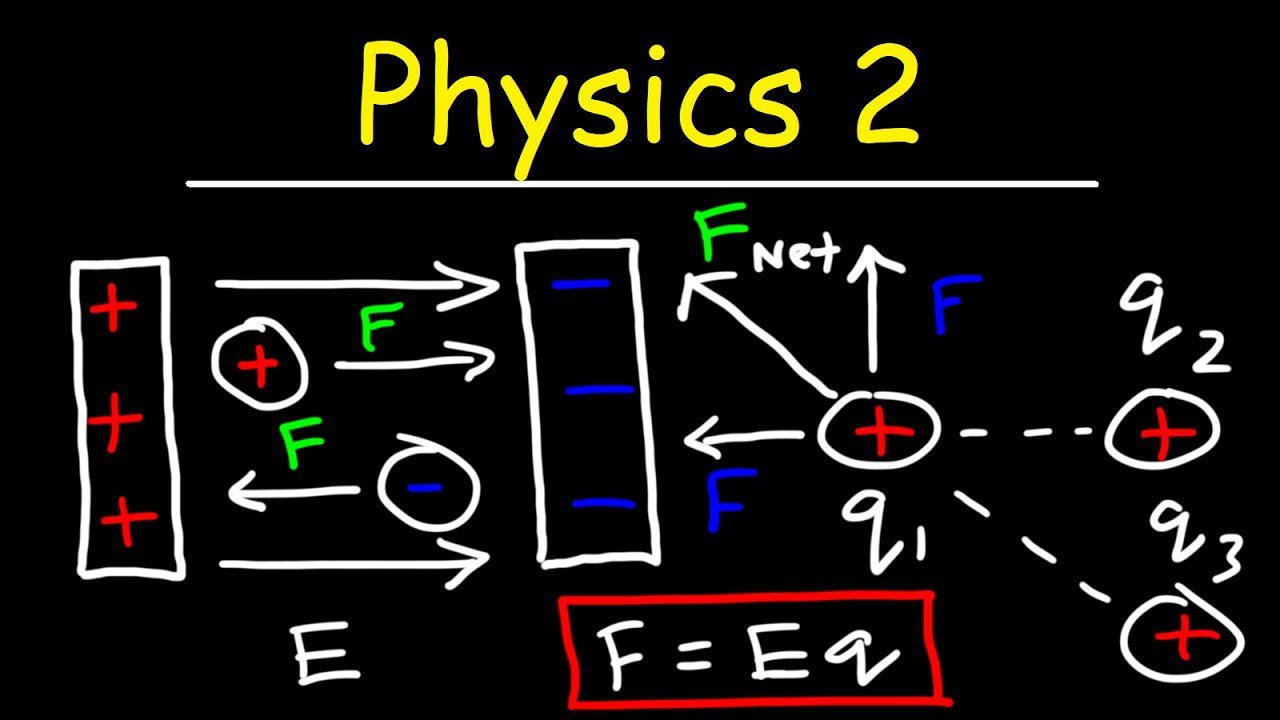 Physics 2
+ + +
F
+
F
-
E
- - -
F Net
F
F
+
q1
q2
+
q3
+
F = Eq